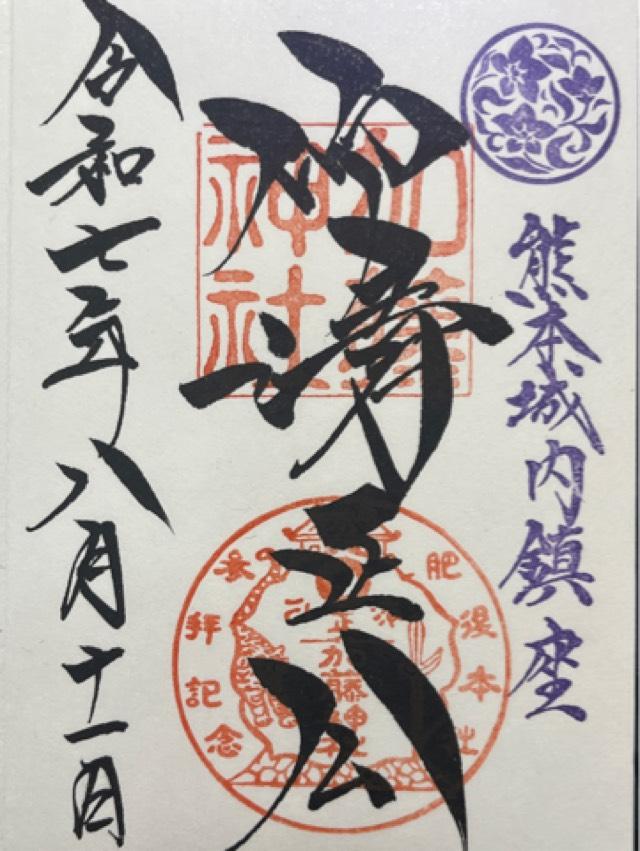 熊本城内鎮座
仰清正公
加藤
神社
加藤神社
参拝記念
令和七年八月十一日